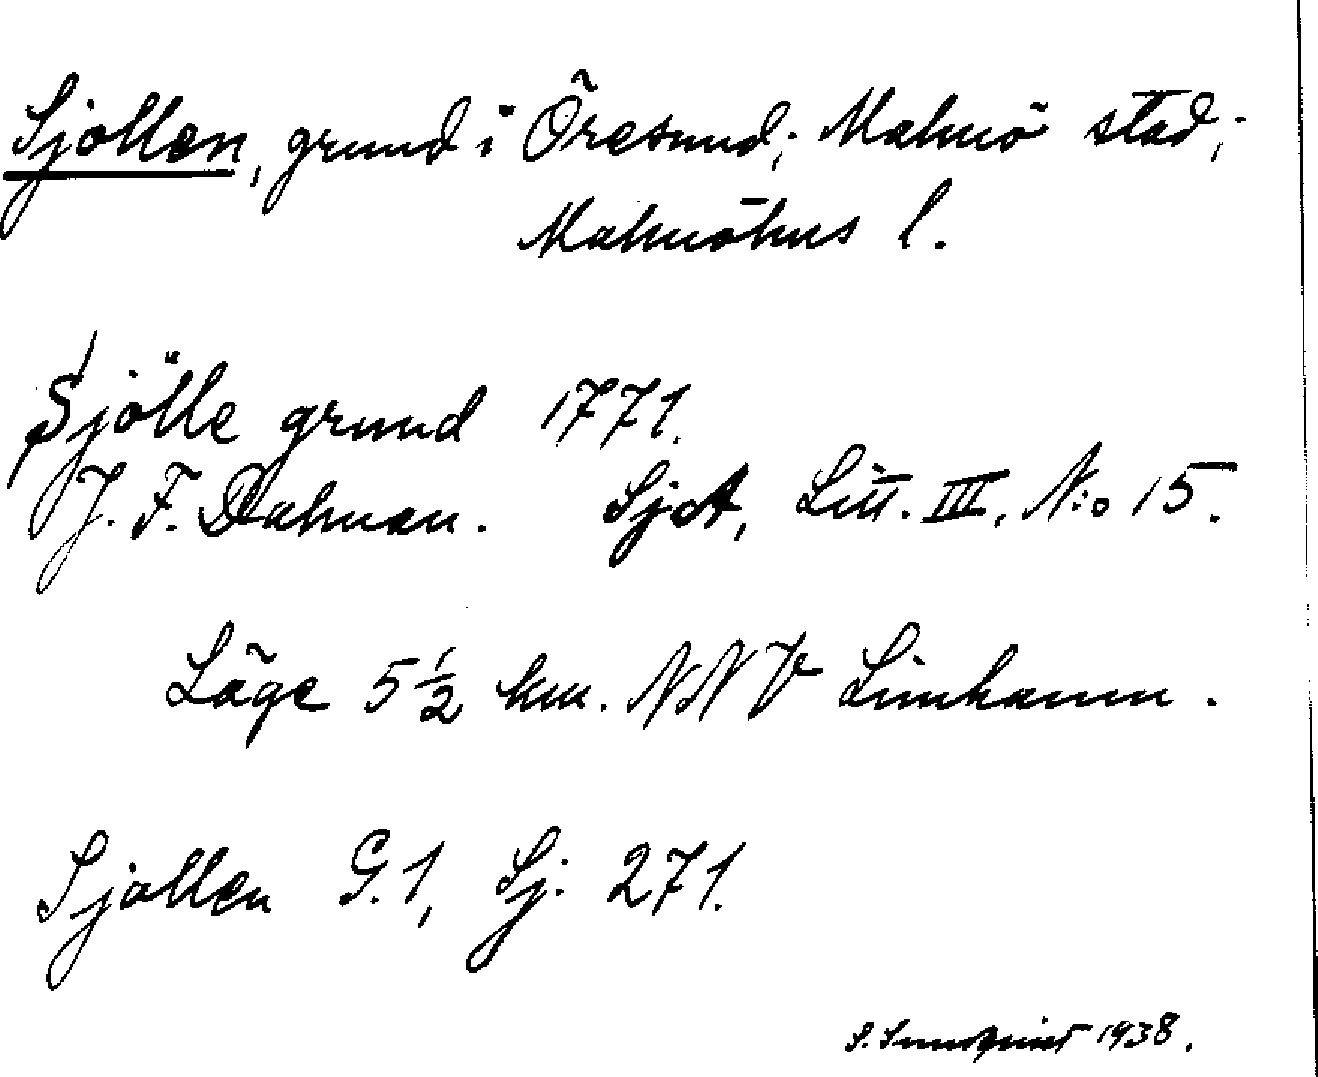 Sjollen, grund i Öresund; Malmö stad;
Malmöhus l.
Sjölle grund 1771.
J. F. Dahman. SjA, Litt. III, N:o 15.
Läge 5 1/2 km. NNV Limhamn.
Sjollen G.1, Sj. 271.
S. Sundqvist 1938.